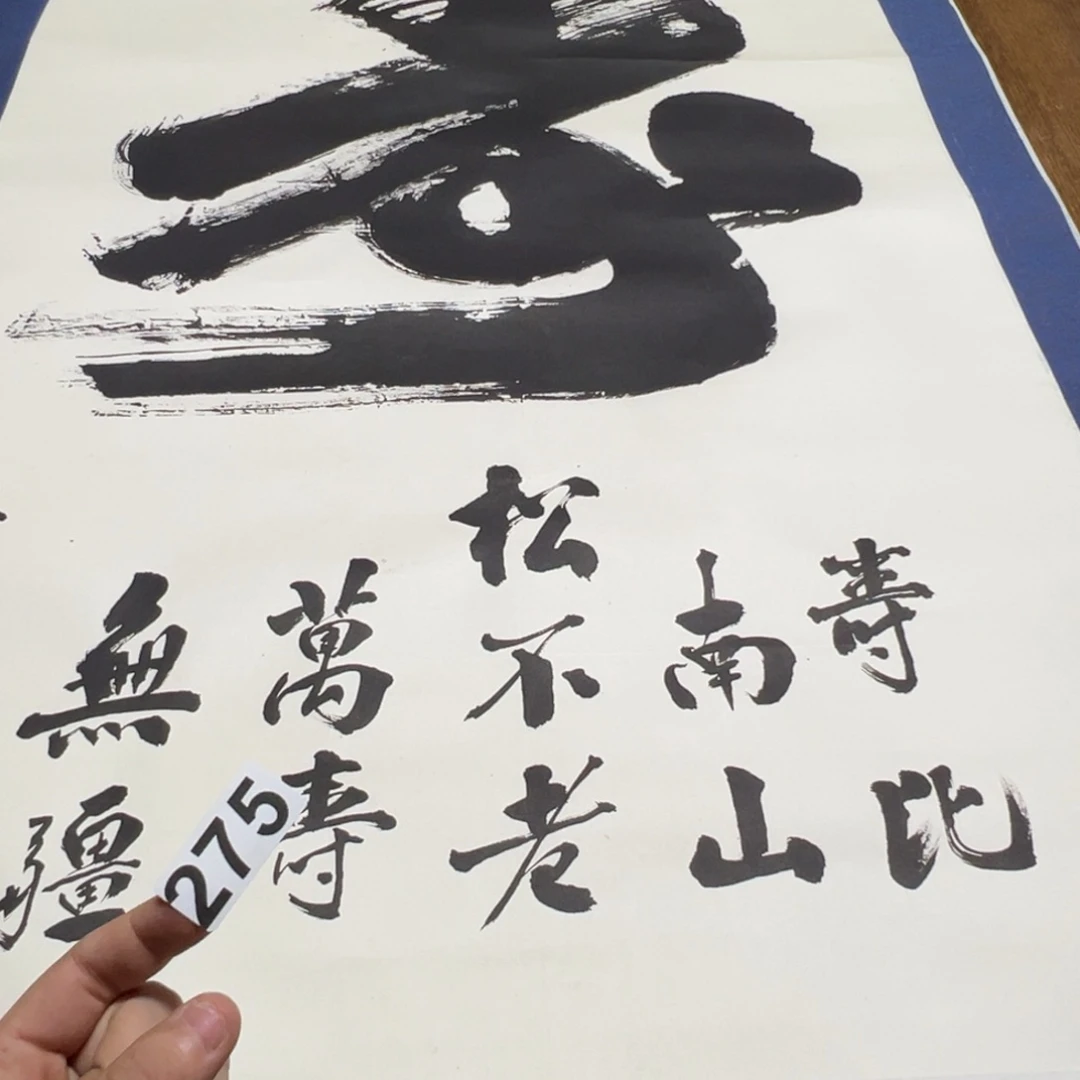 寿比
南山
松不老
萬寿
無疆
275